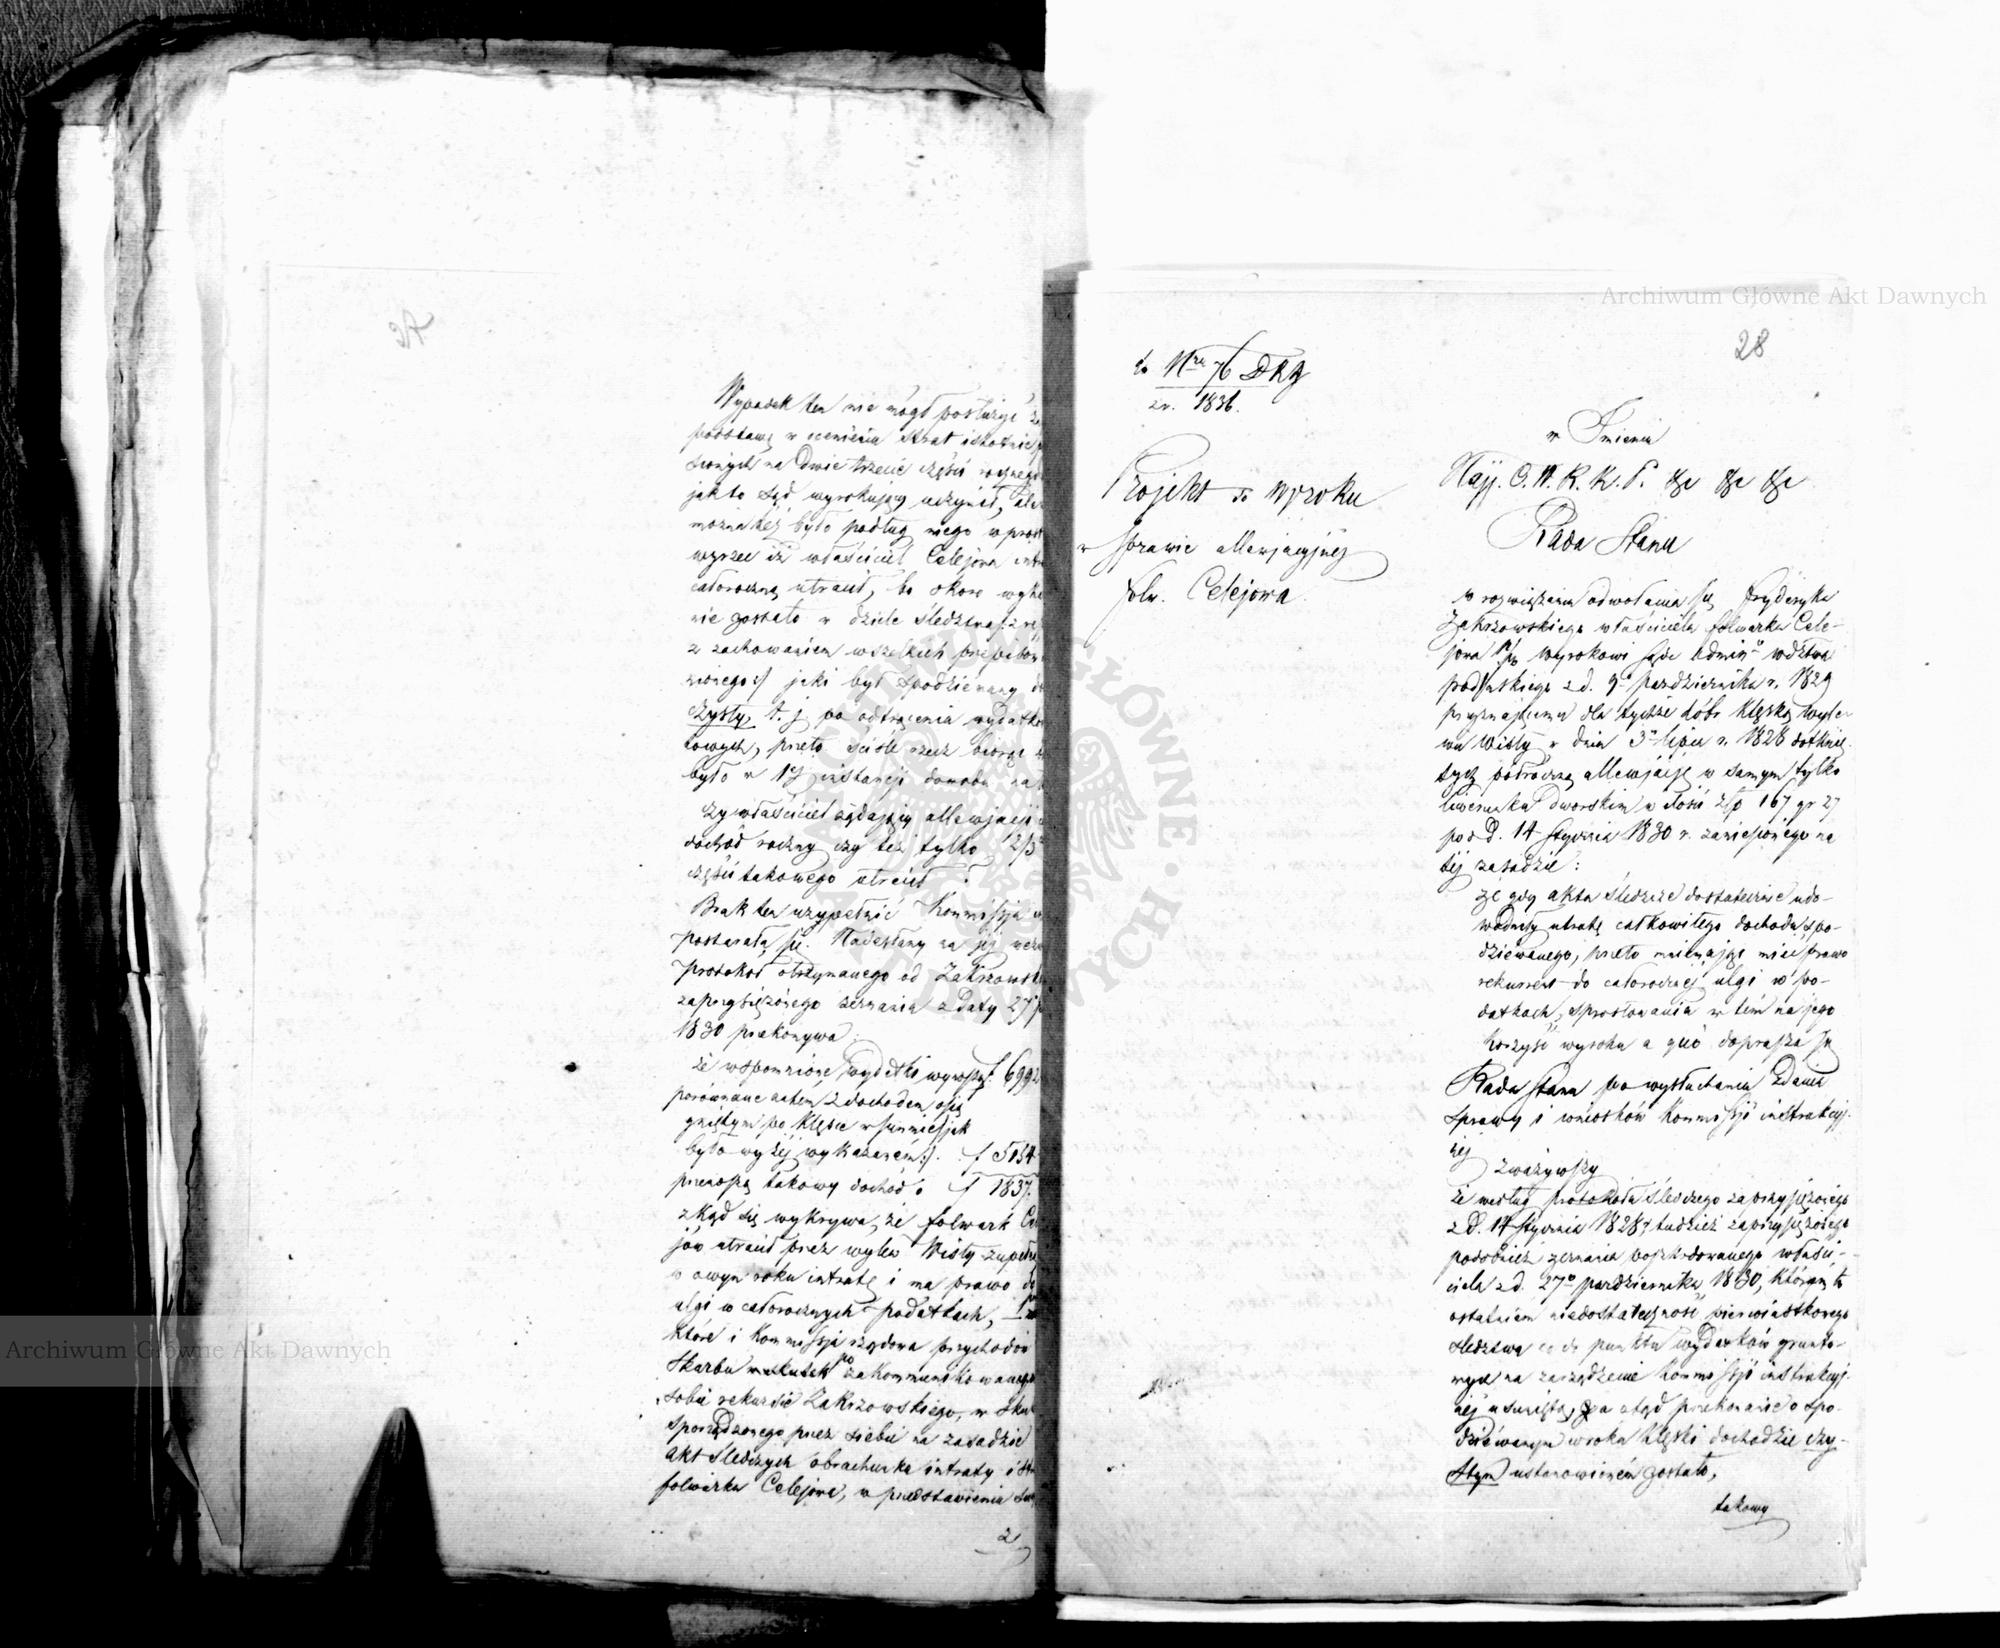 Wypadek ten nie mógł posłużyć za
podstawę w ocenieniu strat istotnie
na Dwie trzecie części rocznego
jak to Sąd wyrokujący uczynił, ale
można też było podług niego wprost
wyrzec iż właściciel Celejowa
całoroczną utracił, bo skoro
nie zostało w dziele śledztwa
z zachowaniem wszelkich
jaki był spodziewany
czysty, t. j. po odtrąceniu wydatków
towych, przeto ściśle rzecz biorąc
było w 1ej instancji dowodu na
czy właściciel żądający allewjacji
dochód roczny czy też tylko 2/3
części takowego utracił
Brak ten uzupełnić Kommissja
postarała się. Nadesłany na jej
Protokół otrzymanego od Zakrzewsk
zaprzysiężonego zeznania z Daty 27
1830 przekonywa:
że wspomnione wydatki wynoszą f. 6992
porównane zatem z dochodem osią
gniętym po klęsce w summie /jak
było wyżej wykazaném:/. f 5154
przenoszą takowy dochód o f 1837.
zkąd się wykrywa, że folwark Ce
jów utracił przez wylew Wisły zupełną
w owym roku intratę i ma prawo do
ulgi w całorocznych podatkach,
które i Kommissja rządowa przychodów
Skarbu w skutek zakommunikowanego
sobie rekursu Zakrzewskiego, w sku
sporządzonego przez siebie na zasadzie
akt śledczych obrachunku intraty i
folwarku Celejowa, w przedstawieniu
2
28
do Nru 76 DKZ
z r. 1836.
Projekt do Wyroku
w sprawie allewjacyjnej
folw. Celejowa.
w Imieniu
Najj. C. W. R. K. P. &c &c &c
Rada Stanu
w rozwiązaniu odwołania się Fryderyka
Zakrzewskiego właściciela folwarku Cele-
jowa p/ko Wyrokowi Sądu Admin. wdztwa
podlaskiego z d. 9 października r. 1829
przyznającemu dla tychże dóbr klęską wyle-
wu Wisły w dniu 3 lipca r. 1828 dotknię-
tych półroczną allewjację w samym tylko
liwerunku Dworskim w ilości złp 167 gr 27
pod D. 14 Stycznia 1830 r. zaniesionego na
tej zasadzie:
że gdy akta śledcze dostatecznie udo-
wodniły utratę całkowitego dochodu spo-
dziewanego, przeto mniemając mieć prawo
rekurrent do całorocznej ulgi w po-
datkach, sprostowania w tém na jego
korzyść wyroku a quo doprasza się
Rada Stanu po wysłuchaniu Zdania
Sprawy i wniosków Kommissji instrukcyj-
nej
zważywszy
że według protokółu śledczego zaprzysiężonego
z D. 14 Stycznia 1828, tudzież zaprzysiężonego
podobnież zeznania poszkodowanego właści-
ciela z d. 27 października 1830, którém to
ostatniém niedostateczność pierwiastkowego
śledztwa co do punktu wydatków grunto-
wych na zarządzenie Kommissji instrukcyj-
nej usuniętą, a stąd przekonanie o spo-
dziéwanym w roku klęski dochodzie czy-
stym ustanowioném zostało,
takowy